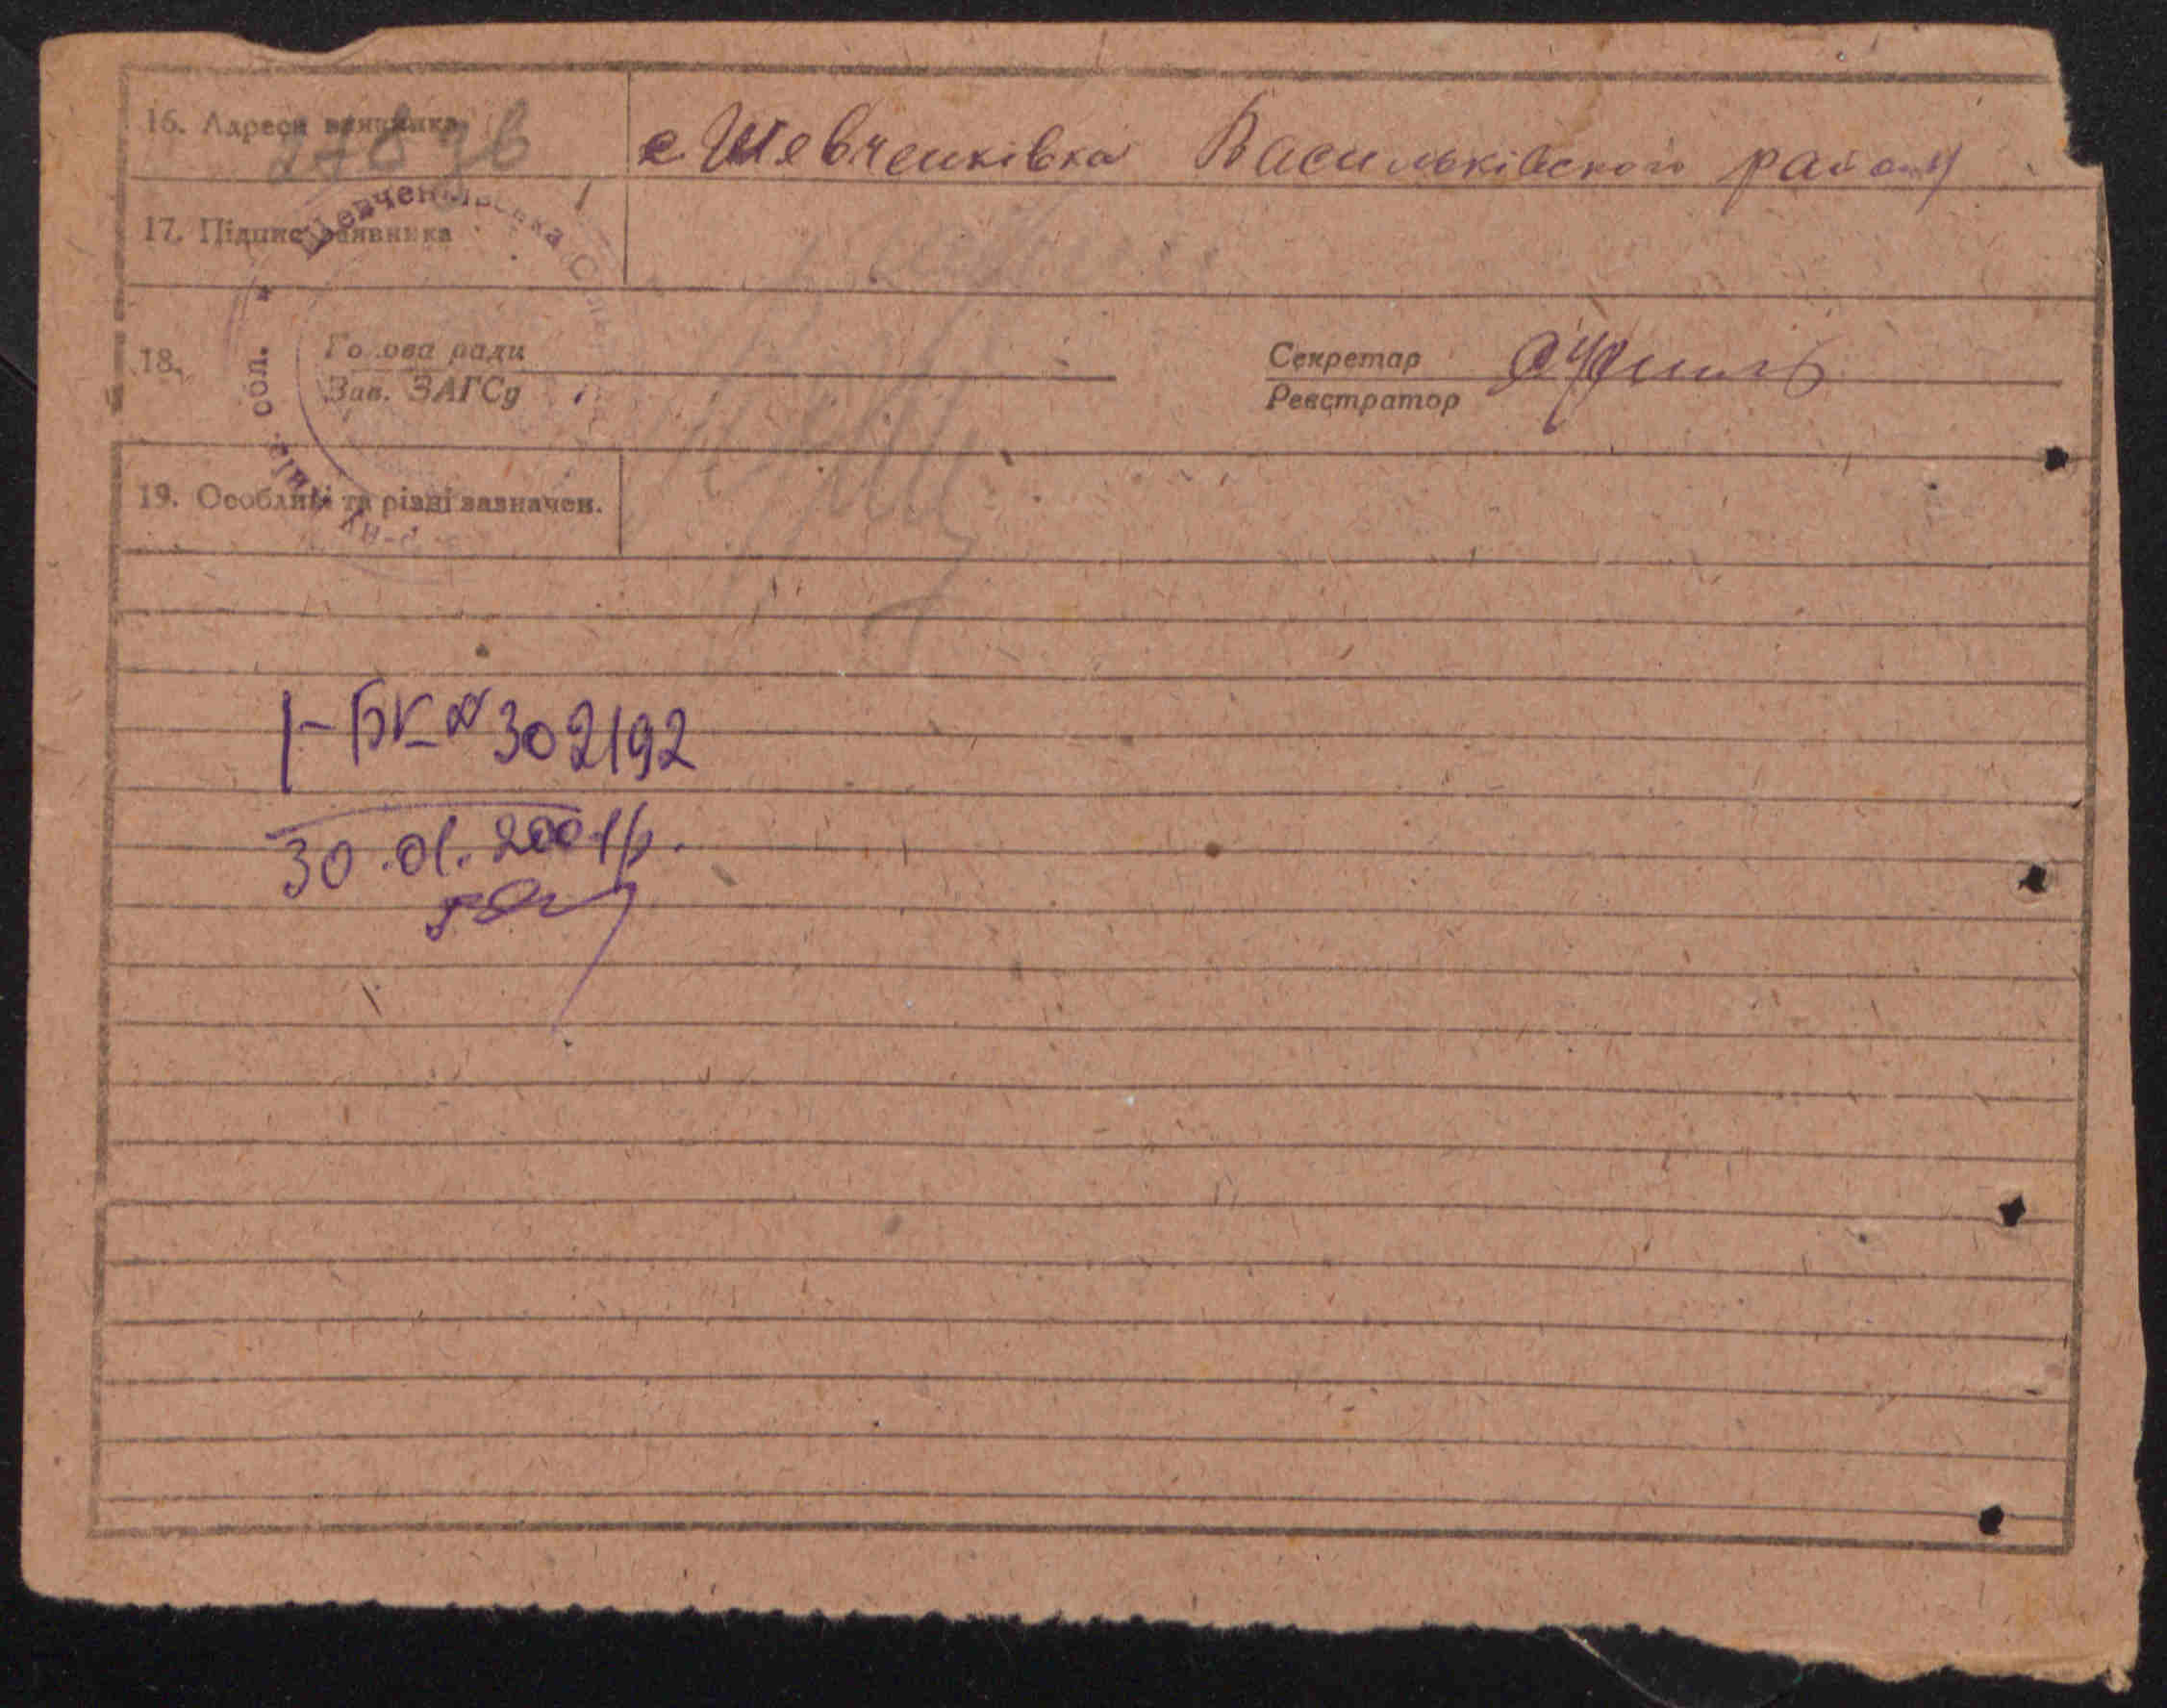 16. Адреса заявника с. Шевченківка Васильківського району
17. Підпис заявника
Шевченківська Сіль
обл.
р-ну
18. Голова ради Секретар
Зав. ЗАГСу Реєстратор
19. Особливі та різні зазначен.
І-БК № 302192
30.01.2001р.